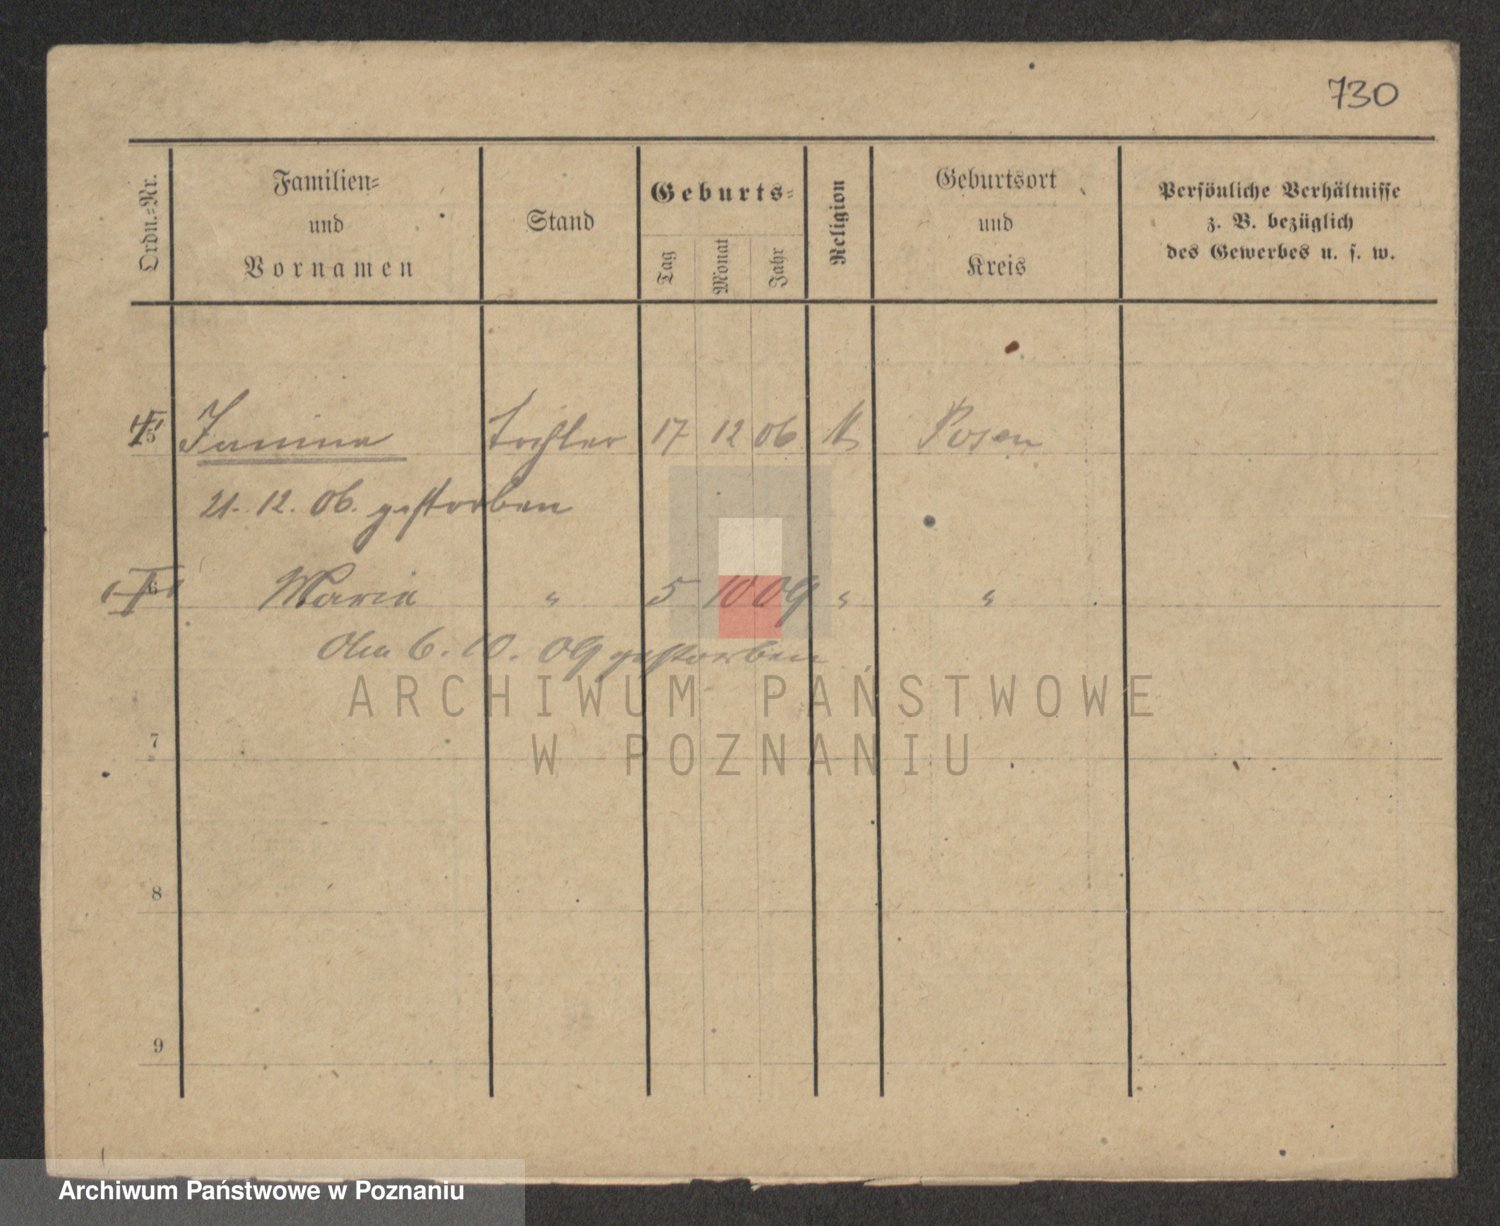 730
Ordn.=Nr.
Familien=
und
Vornamen
Stand
Geburts=
Tag
Monat
Jahr
Religion
Geburtsort
und
Kreis
Persönliche Verhältnisse
z. B. bezüglich
des Gewerbes u. s. w.
5 Janina Tochter 17 12 06 Posen
21. 12. 06. gestorben
6 Maria " 5 10 09 " "
6. 10. 09 gestorben
ARCHIWUM PAŃSTWOWE
W POZNANIU
7
8
9
Archiwum Państwowe w Poznaniu